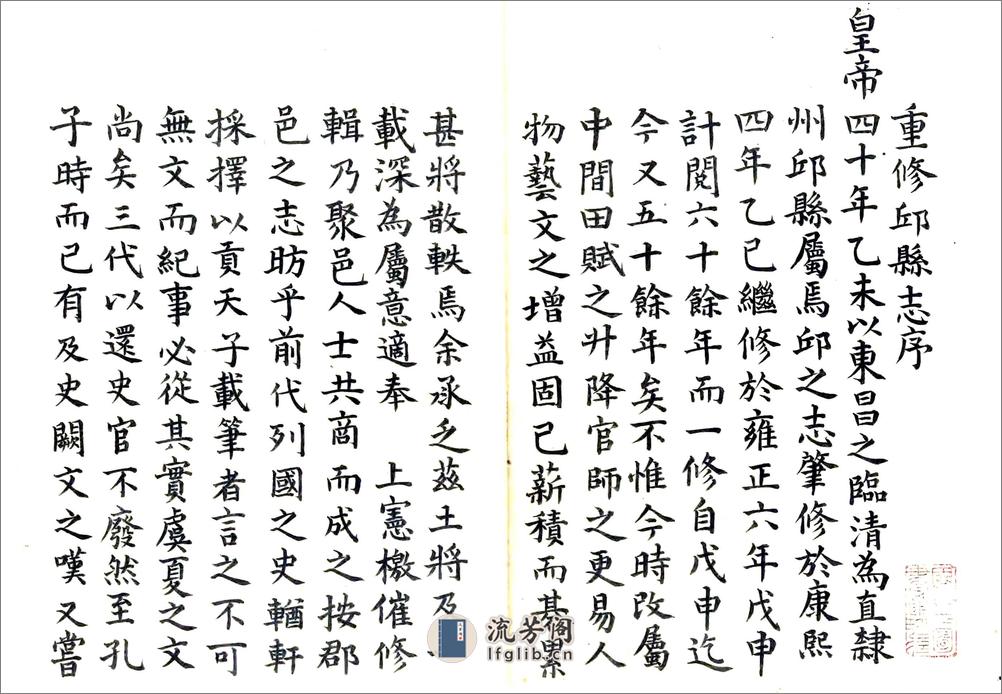 重修邱縣志序
皇帝四十年乙未以東昌之臨清為直隸
州邱縣屬焉邱之志肇修於康熙
四年乙巳繼修於雍正六年戊申
計閱六十餘年而一修自戊申迄
今又五十餘年矣不惟今時改屬
中間田賦之升降官師之更易人
物藝文之增益固已薪積而其舊
甚將散軼焉余承乏茲土將及
載深為屬意適奉 上憲檄催修
輯乃聚邑人士共商而成之按郡
邑之志昉乎前代列國之史輶軒
採擇以貢天子載筆者言之不可
無文而紀事必從其實虞夏之文
尚矣三代以還史官不廢然至孔
子時而已有及史闕文之嘆又嘗
流芳阁
lfglib.cn